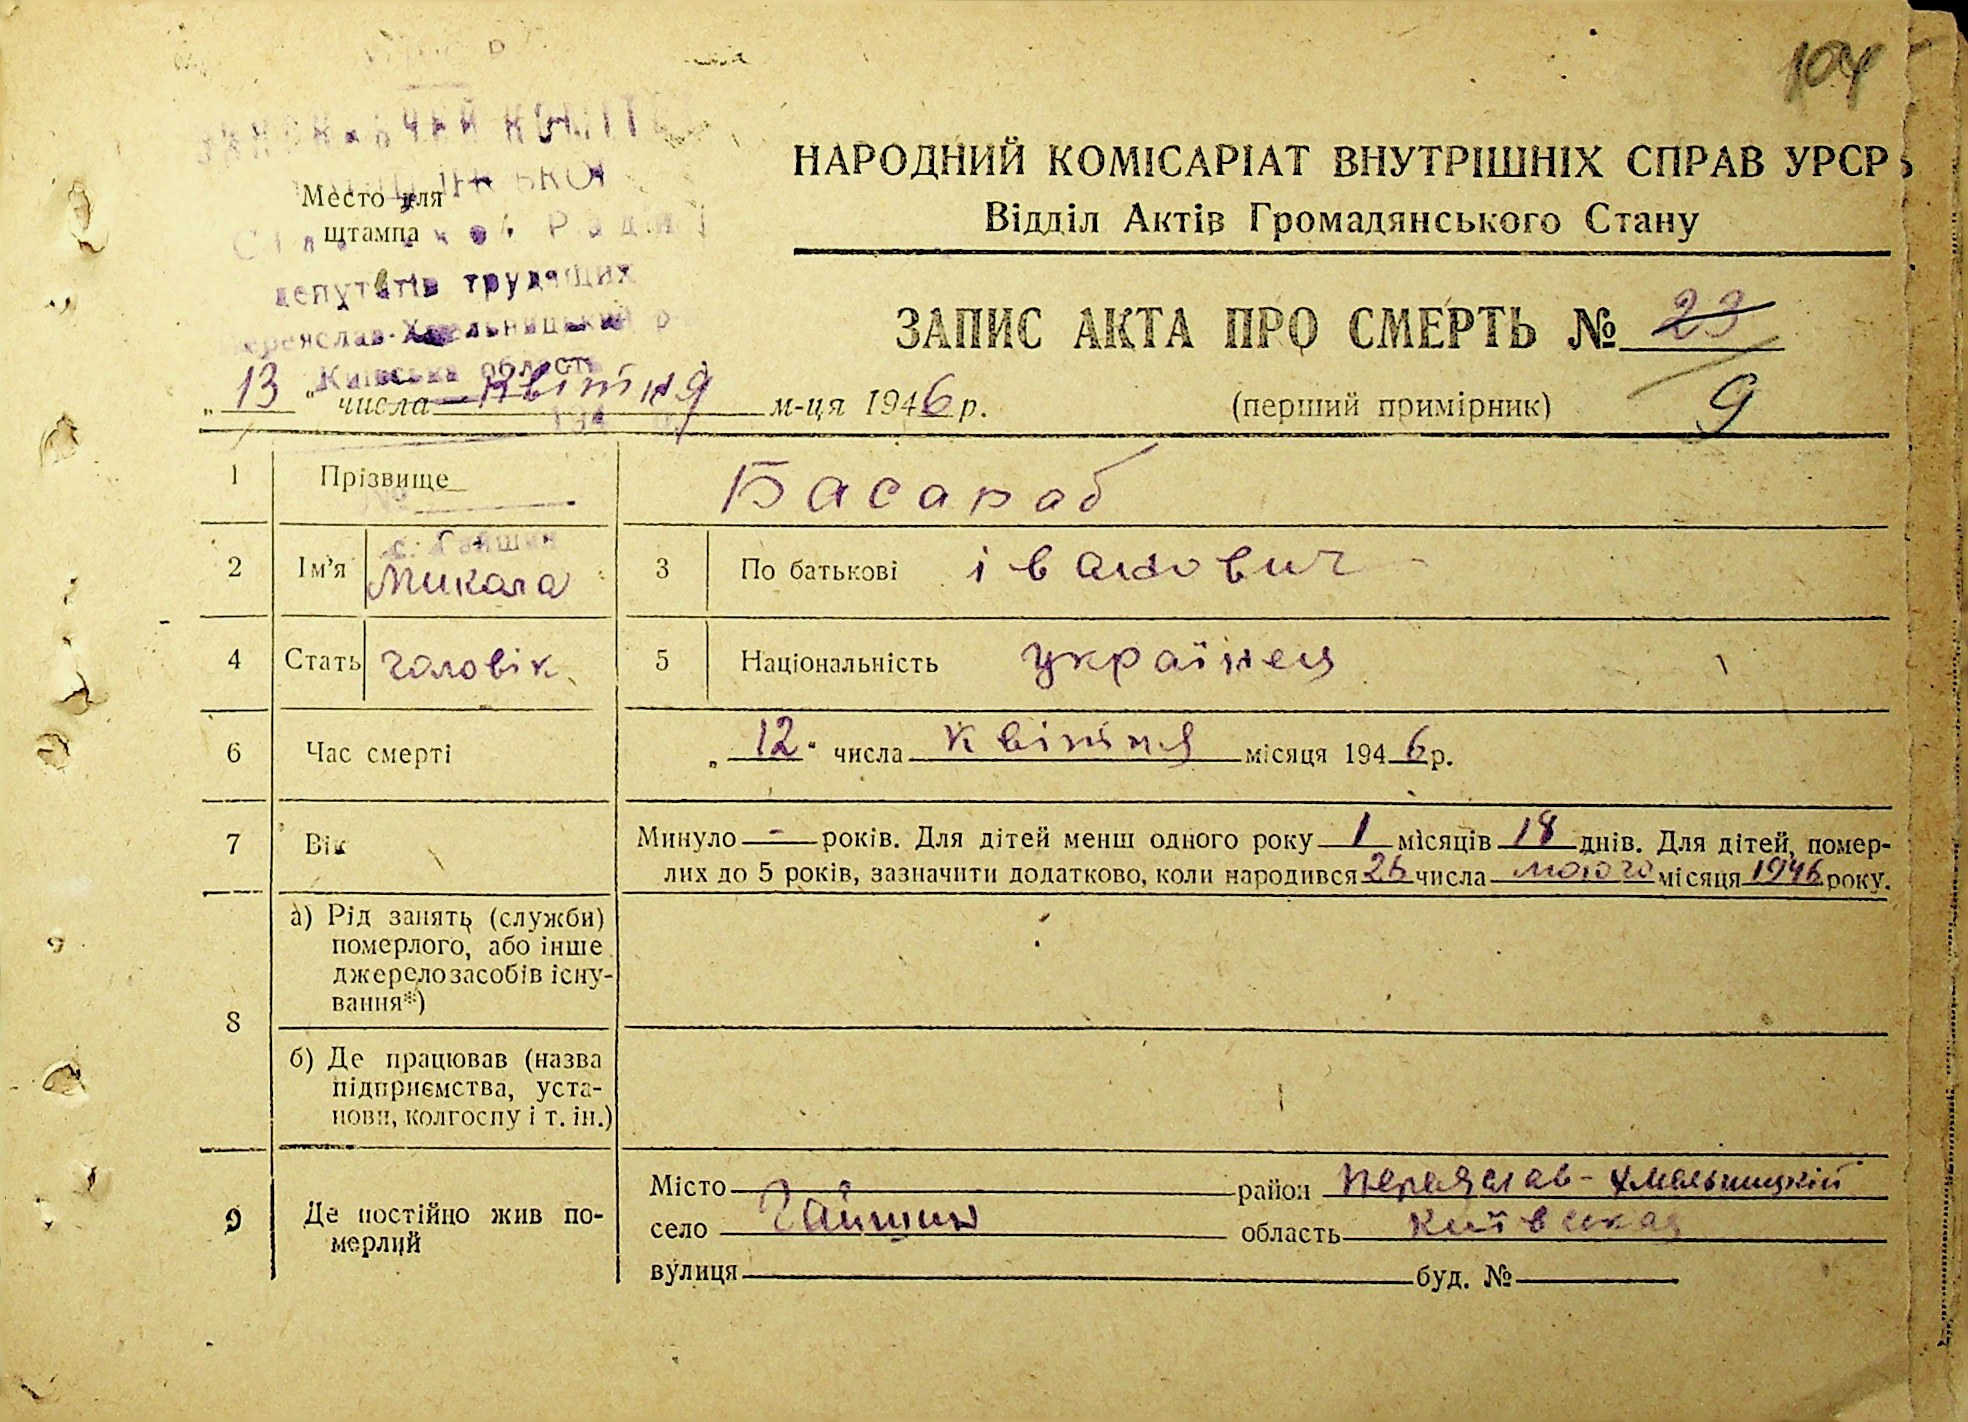 104
НАРОДНИЙ КОМІСАРІАТ ВНУТРІШНІХ СПРАВ УРСР
Відділ Актів Громадянського Стану
Место для
штампа
депутатів трудящих
Переяслав-Хмельницький р
Київська область
ЗАПИС АКТА ПРО СМЕРТЬ № 23
„13“ числа квітня м-ця 1946 р.
(перший примірник) 9
1 Прізвище Басараб
с. Гайшин
2 Ім’я Микола 3 По батькові іванович
4 Стать чоловік 5 Національність українець
6 Час смерті „12“ числа квітня місяця 1946 р.
7 Вік Минуло - років. Для дітей менш одного року 1 місяців 18 днів. Для дітей, помер-
лих до 5 років, зазначити додатково, коли народився 26 числа лютого місяця 1946 року.
8
а) Рід занять (служби)
померлого, або інше
джерело засобів існу-
вання*)
б) Де працював (назва
підприємства, уста-
нови, колгоспу і т. ін.)
9 Де постійно жив по-
мерлий
Місто район Переяслав-Хмельницкий
село Гайшин область Київская
вулиця буд. №